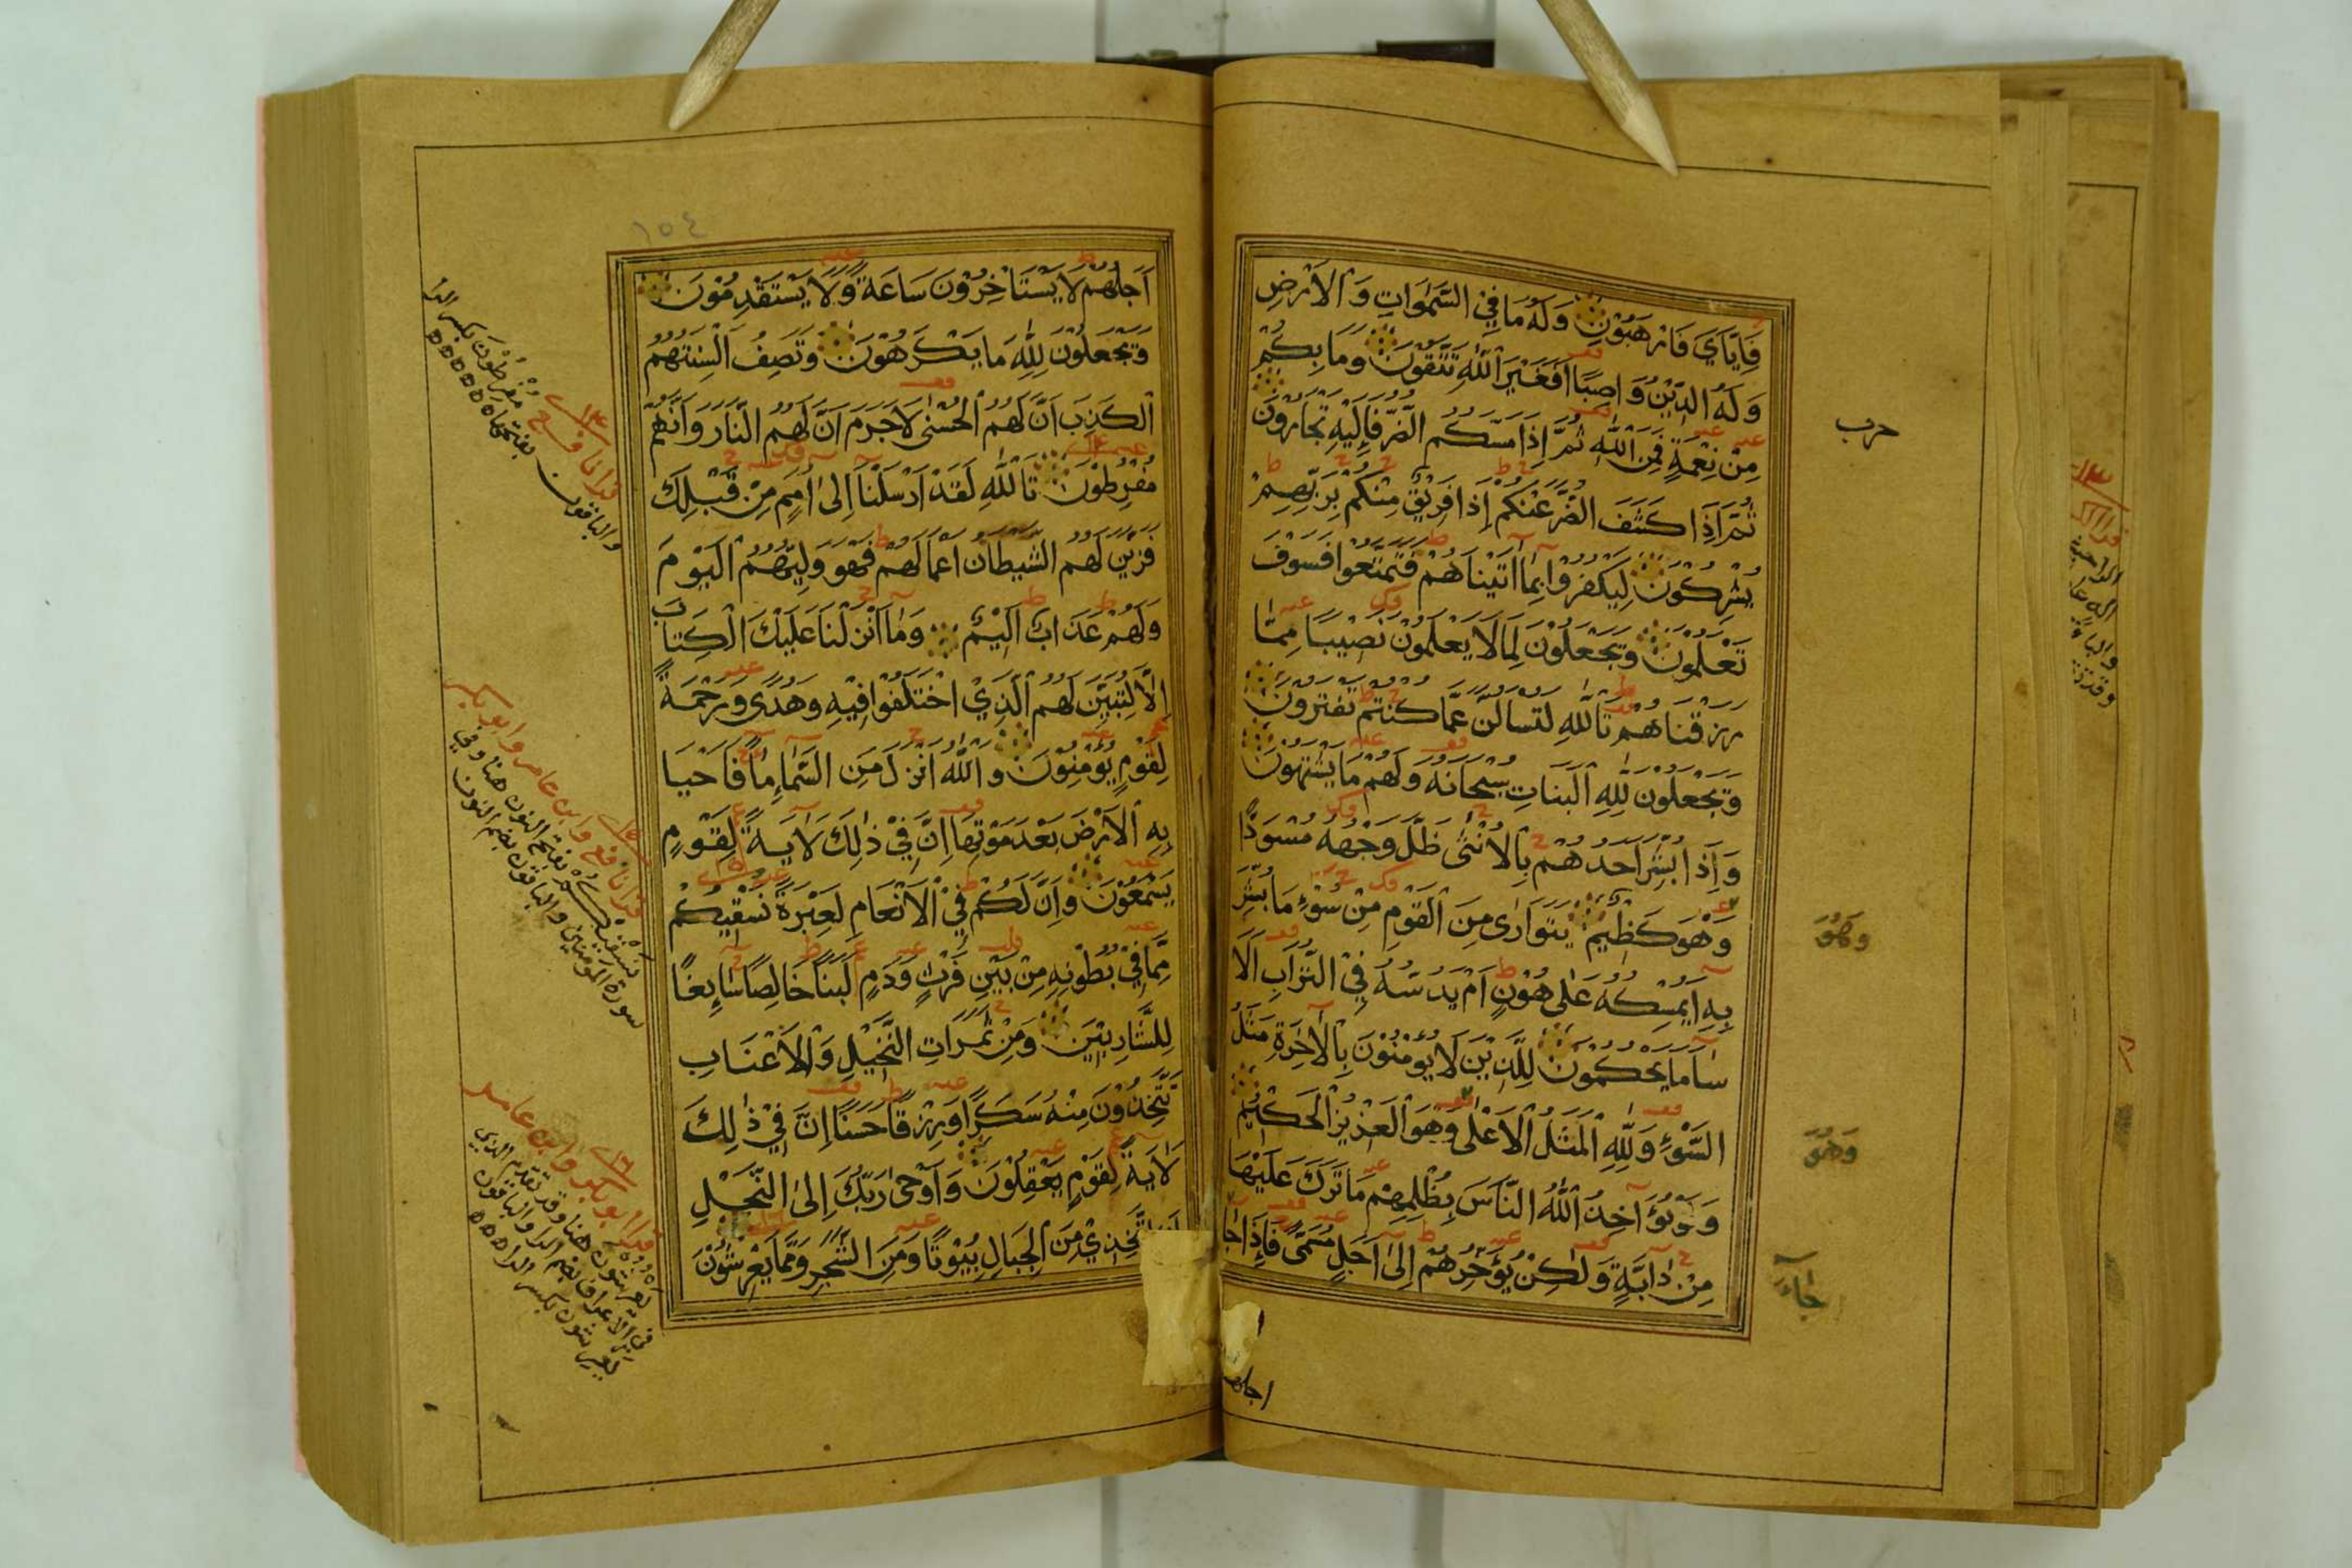 فَإِيَّايَ فَارْهَبُونِ وَلَهُ مَا فِي السَّمٰوَاتِ وَالْأَرْضِ
وَلَهُ الدِّيْنُ وَاصِبًا أَفَغَيْرَ اللّٰهِ تَتَّقُوْنَ وَمَا بِكُمْ
مِنْ نِعْمَةٍ فَمِنَ اللّٰهِ ثُمَّ إِذَا مَسَّكُمُ الضُّرُّ فَإِلَيْهِ تَجْأَرُوْنَ
ثُمَّ إِذَا كَشَفَ الضُّرَّ عَنْكُمْ إِذَا فَرِيْقٌ مِنْكُمْ بِرَبِّهِمْ
يُشْرِكُوْنَ لِيَكْفُرُوْا بِمَا اٰتَيْنَاهُمْ فَتَمَتَّعُوْا فَسَوْفَ
تَعْلَمُوْنَ وَيَجْعَلُوْنَ لِمَا لَا يَعْلَمُوْنَ نَصِيْبًا مِمَّا
رَزَقْنَاهُمْ تَاللّٰهِ لَتُسْأَلُنَّ عَمَّا كُنْتُمْ تَفْتَرُوْنَ
وَيَجْعَلُوْنَ لِلّٰهِ الْبَنَاتِ سُبْحَانَهُ وَلَهُمْ مَا يَشْتَهُوْنَ
وَإِذَا بُشِّرَ أَحَدُهُمْ بِالْأُنْثٰى ظَلَّ وَجْهُهُ مُسْوَدًّا
وَهُوَ كَظِيْمٌ يَتَوَارٰى مِنَ الْقَوْمِ مِنْ سُوْءِ مَا بُشِّرَ
بِهِ أَيُمْسِكُهُ عَلٰى هُوْنٍ أَمْ يَدُسُّهُ فِي التُّرَابِ أَلَا
سَآءَ مَا يَحْكُمُوْنَ لِلَّذِيْنَ لَا يُؤْمِنُوْنَ بِالْاٰخِرَةِ مَثَلُ
السَّوْءِ وَلِلّٰهِ الْمَثَلُ الْأَعْلٰى وَهُوَ الْعَزِيْزُ الْحَكِيْمُ
وَلَوْ يُؤَاخِذُ اللّٰهُ النَّاسَ بِظُلْمِهِمْ مَا تَرَكَ عَلَيْهَا
مِنْ دَابَّةٍ وَلٰكِنْ يُؤَخِّرُهُمْ إِلٰى أَجَلٍ مُسَمًّى فَإِذَا جَا
اجلهم
حرب
وَهُوَ
وَهُوَ
جَاءَ
١٥٤
أَجَلُهُمْ لَا يَسْتَأْخِرُوْنَ سَاعَةً وَلَا يَسْتَقْدِمُوْنَ
وَيَجْعَلُوْنَ لِلّٰهِ مَا يَكْرَهُوْنَ وَتَصِفُ أَلْسِنَتُهُمُ
الْكَذِبَ أَنَّ لَهُمُ الْحُسْنٰى لَا جَرَمَ أَنَّ لَهُمُ النَّارَ وَأَنَّهُمْ
مُفْرَطُوْنَ تَاللّٰهِ لَقَدْ أَرْسَلْنَا إِلٰى أُمَمٍ مِنْ قَبْلِكَ
فَزَيَّنَ لَهُمُ الشَّيْطَانُ أَعْمَالَهُمْ فَهُوَ وَلِيُّهُمُ الْيَوْمَ
وَلَهُمْ عَذَابٌ أَلِيْمٌ وَمَا أَنْزَلْنَا عَلَيْكَ الْكِتَابَ
إِلَّا لِتُبَيِّنَ لَهُمُ الَّذِيْ اخْتَلَفُوْا فِيْهِ وَهُدًى وَرَحْمَةً
لِقَوْمٍ يُؤْمِنُوْنَ وَاللّٰهُ أَنْزَلَ مِنَ السَّمَاءِ مَاءً فَأَحْيَا
بِهِ الْأَرْضَ بَعْدَ مَوْتِهَا إِنَّ فِيْ ذٰلِكَ لَاٰيَةً لِقَوْمٍ
يَسْمَعُوْنَ وَإِنَّ لَكُمْ فِي الْأَنْعَامِ لَعِبْرَةً نُسْقِيْكُمْ
مِمَّا فِيْ بُطُوْنِهِ مِنْ بَيْنِ فَرْثٍ وَدَمٍ لَبَنًا خَالِصًا سَائِغًا
لِلشَّارِبِيْنَ وَمِنْ ثَمَرَاتِ النَّخِيْلِ وَالْأَعْنَابِ
تَتَّخِذُوْنَ مِنْهُ سَكَرًا وَرِزْقًا حَسَنًا إِنَّ فِيْ ذٰلِكَ
لَاٰيَةً لِقَوْمٍ يَعْقِلُوْنَ وَأَوْحٰى رَبُّكَ إِلَى النَّحْلِ
اتَّخِذِيْ مِنَ الْجِبَالِ بُيُوْتًا وَمِنَ الشَّجَرِ وَمِمَّا يَعْرِشُوْنَ
قرا نافع مُفْرِطُوْنَ بكسر الرا
والباقون بفتحها
قرا نافع وابن عامر وابو بكر
نَسْقِيْكُمْ بفتح النون هنا وفي
سورة المومنين والباقون بضم النون
قرا ابو بكر وابن عامر
يَعْرُشُوْنَ هنا وقد تقدم الذي
في الاعراف بضم الرا والباقون
يَعْرِشون بكسر الرا